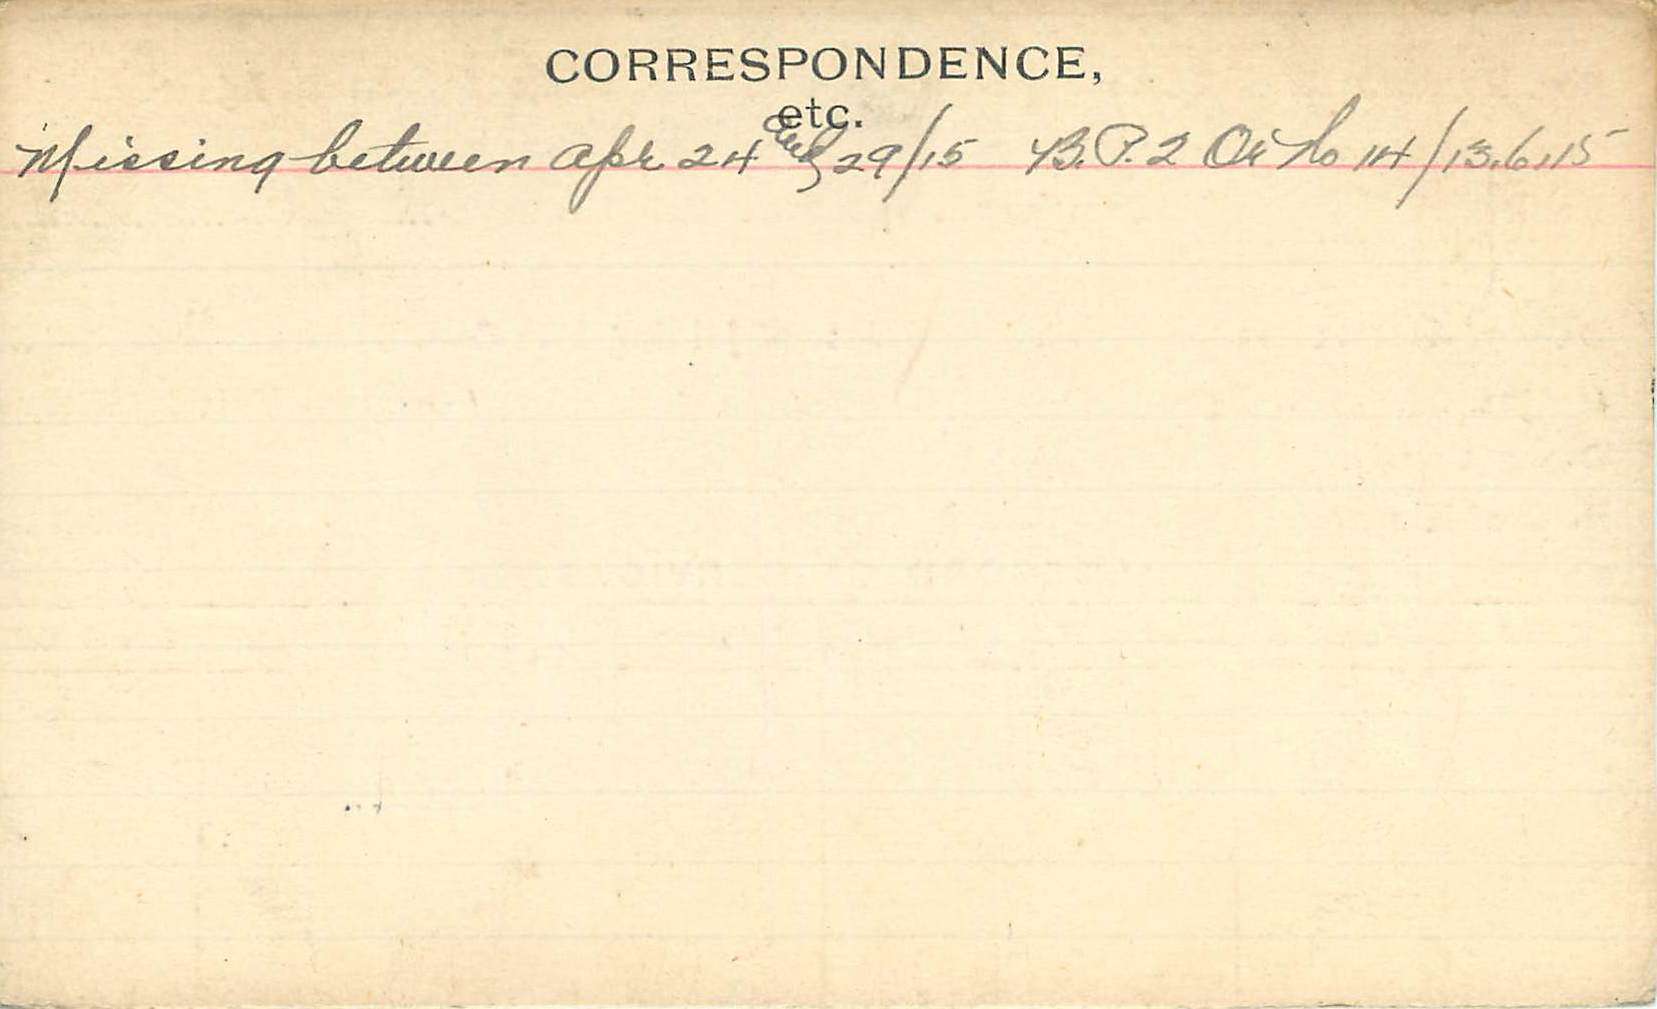 CORRESPONDENCE,
etc.
Missing between Apr 24 and 29/15 B.P. 2 Or No 114/13.6.15